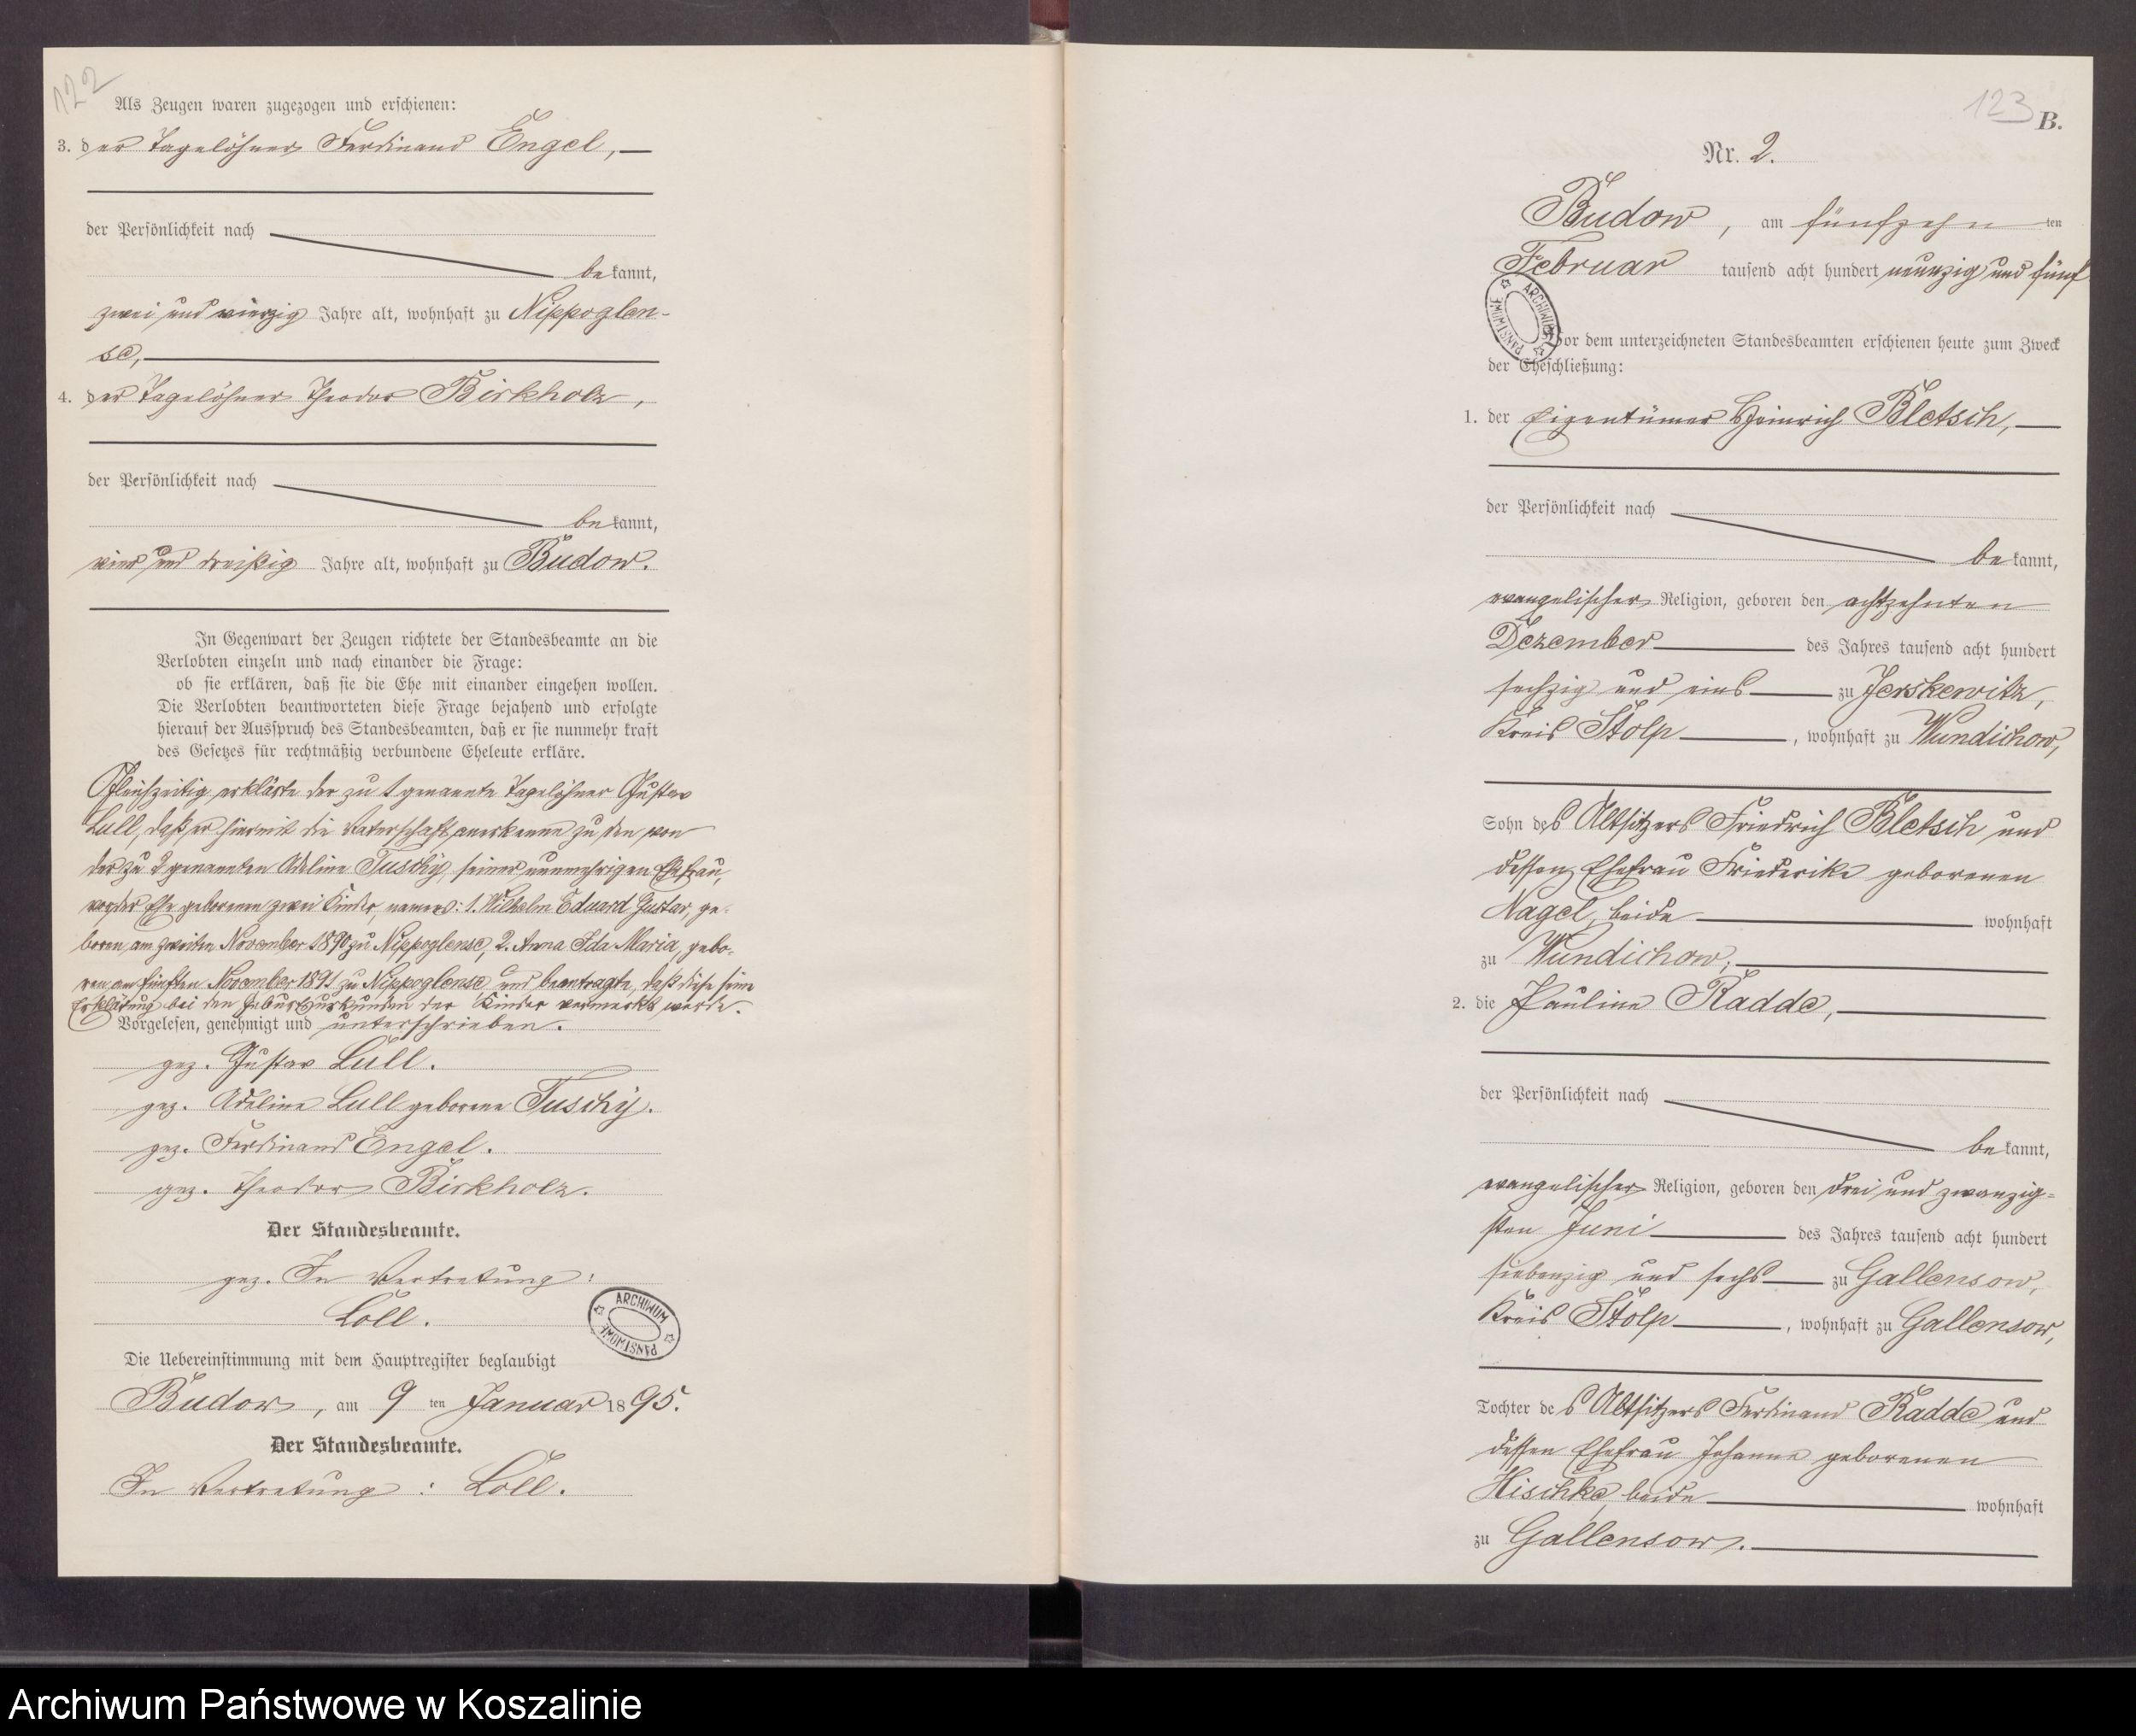 122
Als Zeugen waren zugezogen und erschienen:
3. der Tagelöhner Ferdinand Engel,
der Persönlichkeit nach
bekannt,
zwei und vierzig Jahre alt, wohnhaft zu Nippoglen-
se,
4. der Tagelöhner Theodor Birkholz,
der Persönlichkeit nach
bekannt,
vier und dreißig Jahre alt, wohnhaft zu Budow.
In Gegenwart der Zeugen richtete der Standesbeamte an die
Verlobten einzeln und nach einander die Frage:
ob sie erklären, daß sie die Ehe mit einander eingehen wollen.
Die Verlobten beantworteten diese Frage bejahend und erfolgte
hierauf der Ausspruch des Standesbeamten, daß er sie nunmehr kraft
des Gesetzes für rechtmäßig verbundene Eheleute erkläre.
Gleichzeitig erklärte der zu 1 genannte Tagelöhner Gustav
Lull, daß er hiermit die Vaterschaft anerkenne zu den von
der zu 2 genannten Adeline Tuschy, seiner nunmehrigen Ehefrau,
vor der Ehe geborenen zwei Kinder, namens: 1. Wilhelm Eduard Gustav, ge-
boren am zweiten November 1890 zu Nippoglense, 2. Anna Ida Maria, gebo-
ren am fünften November 1891 zu Nippoglense und beantragte, daß diese seine
Erklärung bei den Geburtsurkunden der Kinder vermerkt werde.
Vorgelesen, genehmigt und unterschrieben.
gez. Gustav Lull.
gez. Adeline Lull geborene Tuschy.
gez. Ferdinand Engel.
gez. Theodor Birkholz.
Der Standesbeamte.
gez. In Vertretung:
Löll.
ARCHIWUM PAŃSTWOWE
Die Uebereinstimmung mit dem Hauptregister beglaubigt
Budow, am 9 ten Januar 1895.
Der Standesbeamte.
In Vertretung: Löll.
123
B.
Nr. 2.
Budow, am fünfzehn ten
Februar tausend acht hundert neunzig und fünf
ARCHIWUM PAŃSTWOWE
Vor dem unterzeichneten Standesbeamten erschienen heute zum Zweck
der Eheschließung:
1. der Eigentümer Heinrich Bletsch,
der Persönlichkeit nach
bekannt,
evangelischer Religion, geboren den achtzehnten
Dezember des Jahres tausend acht hundert
sechzig und eins zu Jerskewitz,
Kreis Stolp, wohnhaft zu Wundichow,
Sohn des Altsitzers Friedrich Bletsch und
dessen Ehefrau Friederike geborenen
Nagel, beide wohnhaft
zu Wundichow;
2. die Pauline Radde,
der Persönlichkeit nach
bekannt,
evangelischer Religion, geboren den drei und zwanzig-
sten Juni des Jahres tausend acht hundert
siebenzig und sechs zu Gallensow,
Kreis Stolp, wohnhaft zu Gallensow,
Tochter des Altsitzers Ferdinand Radde und
dessen Ehefrau Johanna geborenen
Hischke, beide wohnhaft
zu Gallensow.
Archiwum Państwowe w Koszalinie